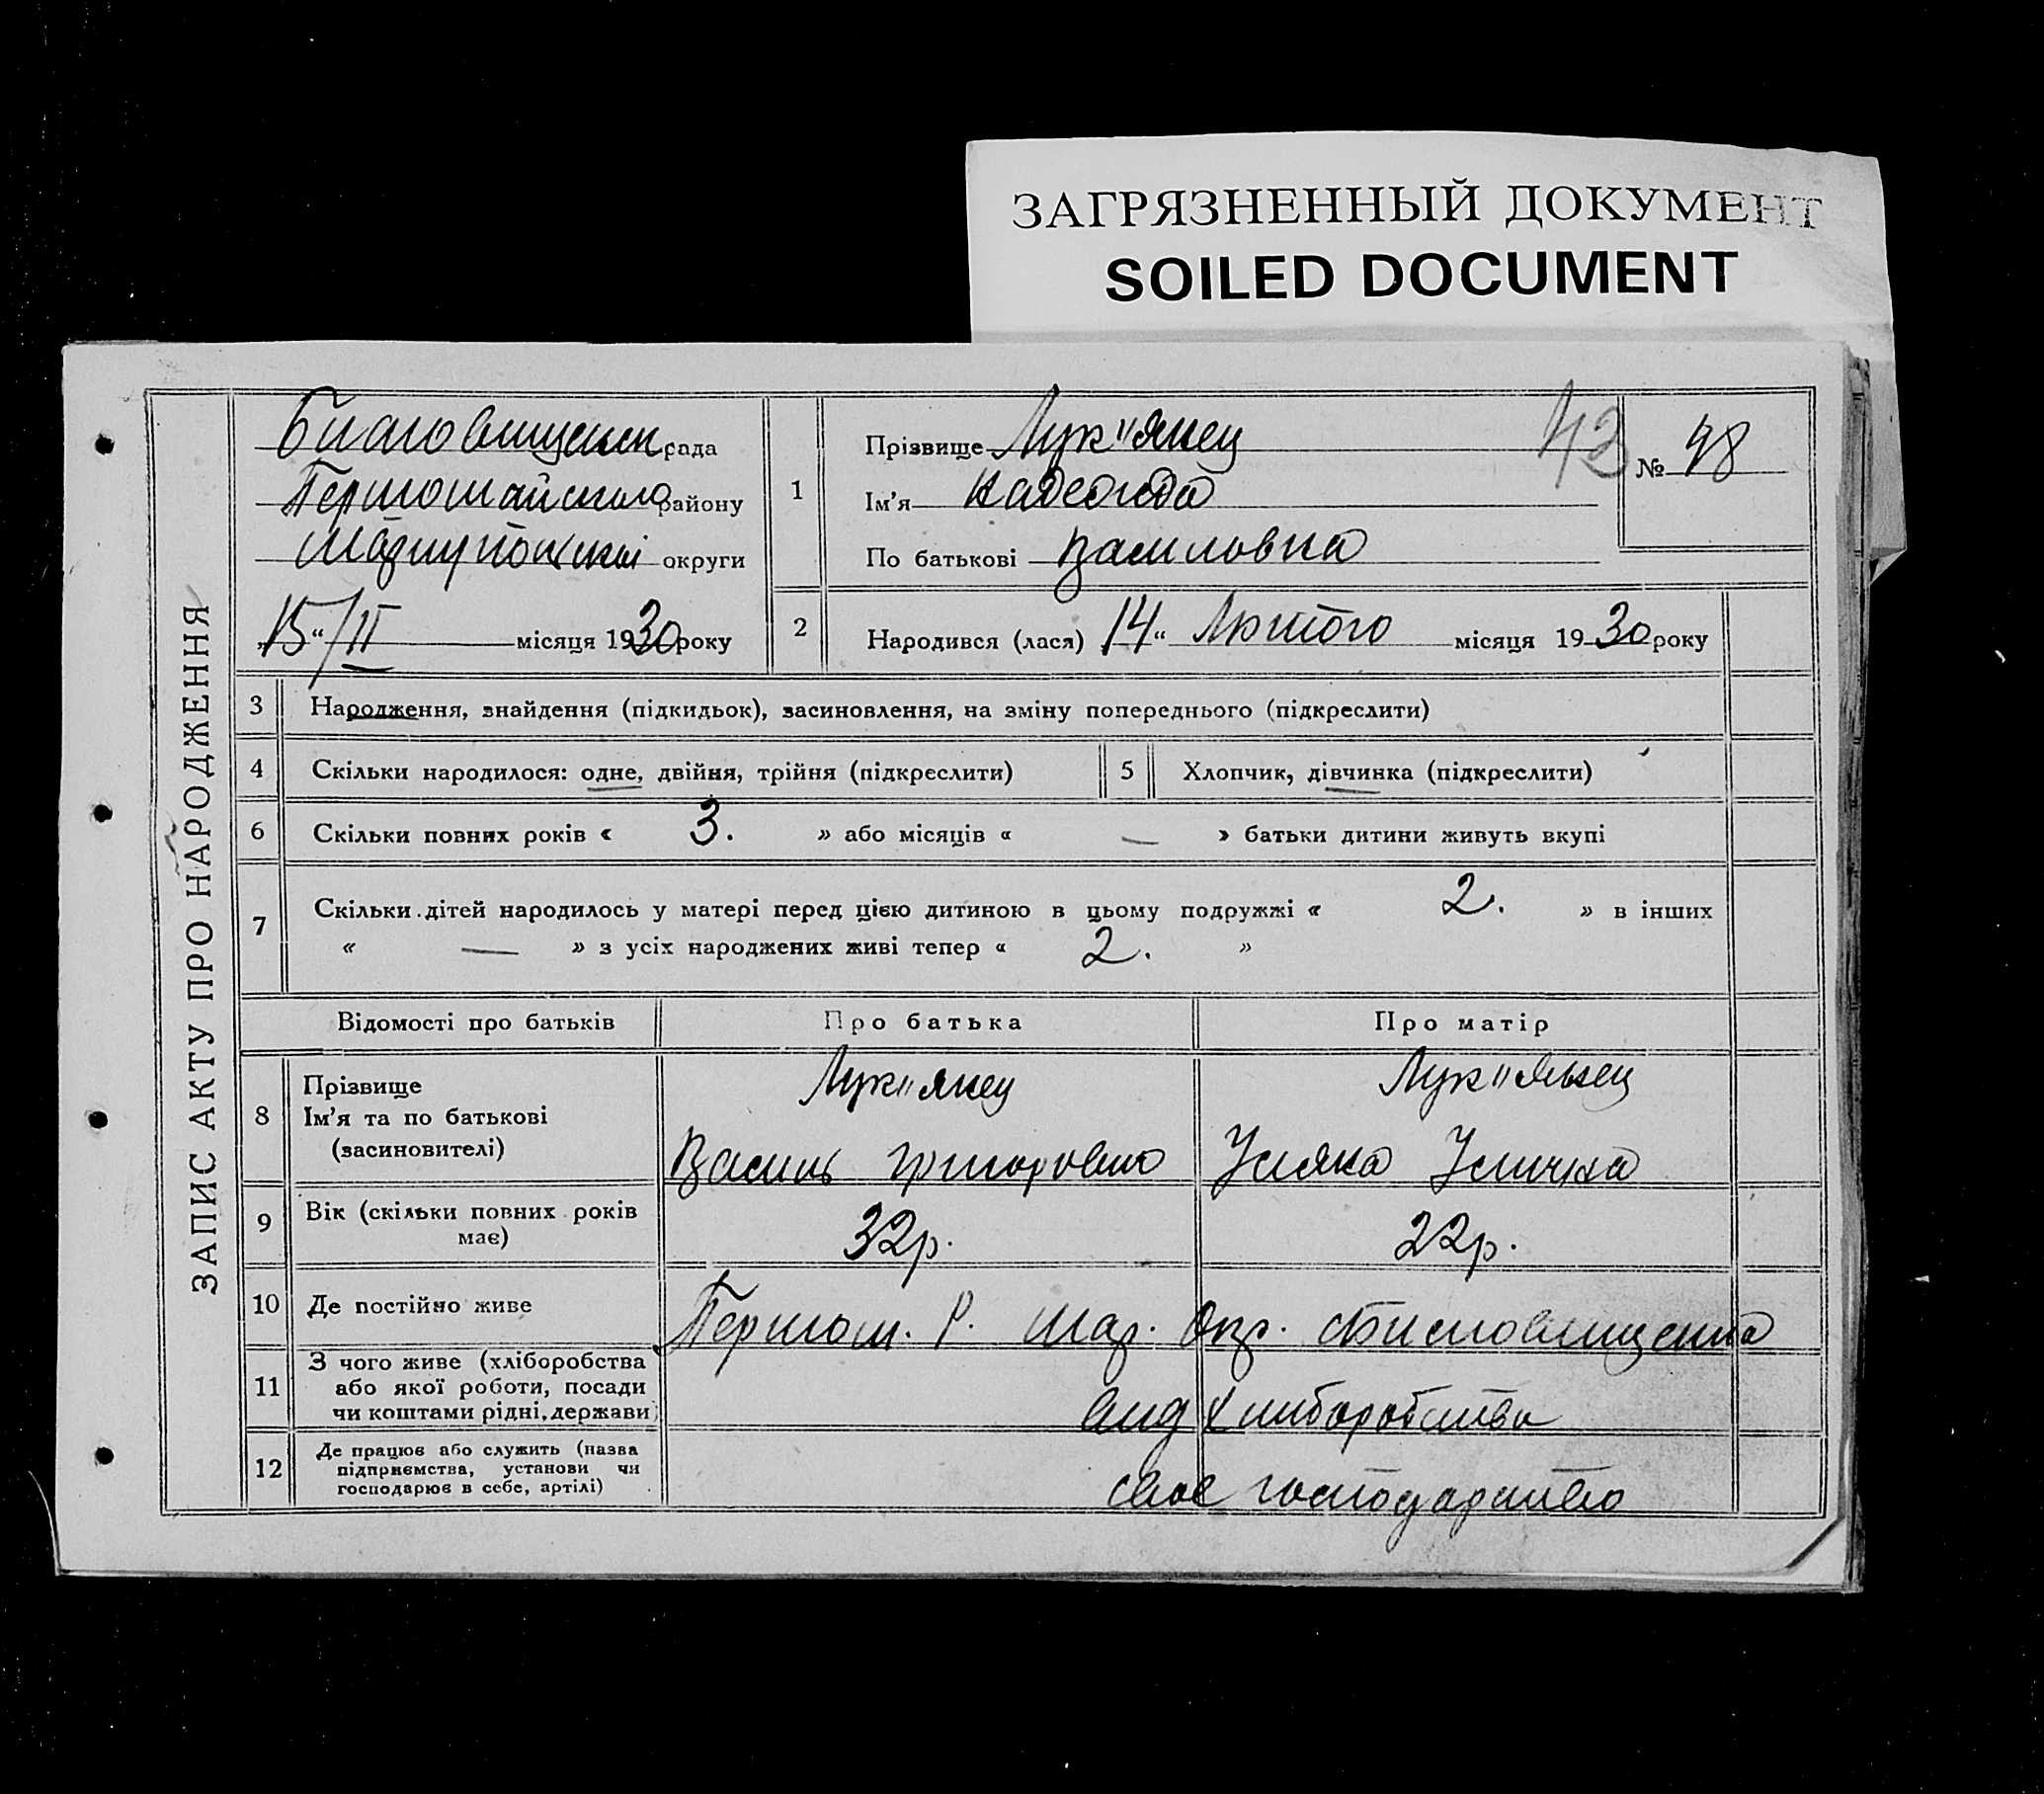 ЗАГРЯЗНЕННЫЙ ДОКУМЕНТ
SOILED DOCUMENT
ЗАПИС АКТУ ПРО НАРОДЖЕННЯ
рада
району
округи
„15“/II місяця 1930 року
1
Прізвище Лук"янец
Ім'я Надеонда
По батькові Василовна
42
№ 48
2 Народився (лася) „14“ Лютого місяця 1930 року
3 Народження, знайдення (підкидьок), засиновлення, на зміну попереднього (підкреслити)
4 Скільки народилося: одне, двійня, трійня (підкреслити) 5 Хлопчик, дівчинка (підкреслити)
6 Скільки повних років « 3. » або місяців « — » батьки дитини живуть вкупі
7 Скільки дітей народилось у матері перед цією дитиною в цьому подружжі « 2. » в інших
« — » з усіх народжених живі тепер « 2. »
Відомості про батьків Про батька Про матір
8 Прізвище
Ім'я та по батькові
(засиновителі)
Лук"янец
Василь
Лук"яньец
Уляна
9 Вік (скільки повних років
має)
32р. 22р.
10 Де постійно живе
Першом. Р. Мар. Окр.
11 З чого живе (хліборобства
або якої роботи, посади
чи коштами рідні, держави)
вид хлиборобства
12 Де працює або служить (назва
підприємства, установи чи
господарює в себе, артілі)
свое господарство